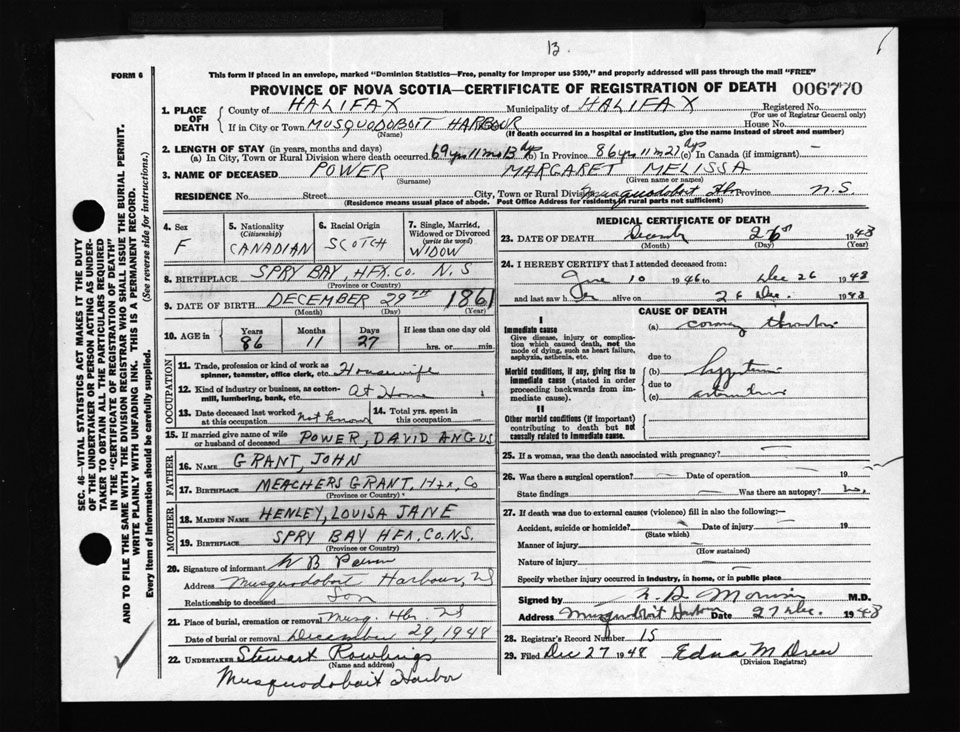 13
FORM 6
This form if placed in an envelope, marked "Dominion Statistics—Free, penalty for improper use $300," and properly addressed will pass through the mail "FREE"
PROVINCE OF NOVA SCOTIA—CERTIFICATE OF REGISTRATION OF DEATH 006770
1. PLACE OF DEATH
County of HALIFAX Municipality of HALIFAX Registered No.
(For use of Registrar General only)
If in City or Town MUSQUODOBOIT HARBOUR House No.
(Name) (If death occurred in a hospital or institution, give the name instead of street and number)
2. LENGTH OF STAY (in years, months and days)
(a) In City, Town or Rural Division where death occurred 69 yrs 11 mo 13 dys (b) In Province 86 yrs 11 m 27 dys (c) In Canada (if immigrant) —
3. NAME OF DECEASED POWER MARGARET MELISSA
(Surname) (Given name or names)
RESIDENCE No. Street City, Town or Rural Div. Musquodoboit Hr. Province N.S.
(Residence means usual place of abode. Post Office Address for residents in rural parts not sufficient)
4. Sex F
5. Nationality (Citizenship) CANADIAN
6. Racial Origin SCOTCH
7. Single, Married, Widowed or Divorced (write the word) WIDOW
8. BIRTHPLACE SPRY BAY, HFX. CO. N.S
(Province or Country)
9. DATE OF BIRTH DECEMBER 29TH 1861
(Month) (Day) (Year)
10. AGE in Years 86 Months 11 Days 27 If less than one day old hrs. or min.
OCCUPATION
11. Trade, profession or kind of work as spinner, teamster, office clerk, etc. Housewife
12. Kind of industry or business, as cotton-mill, lumbering, bank, etc. At Home
13. Date deceased last worked at this occupation not known
14. Total yrs. spent in this occupation
15. If married give name of wife or husband of deceased POWER, DAVID ANGUS
FATHER
16. NAME GRANT, JOHN
17. BIRTHPLACE MEAGHERS GRANT, Hfx, Co
(Province or Country)
MOTHER
18. MAIDEN NAME HENLEY, LOUISA JANE
19. BIRTHPLACE SPRY BAY HFX. CO. N.S.
(Province or Country)
20. Signature of informant W B Power
Address Musquodoboit Harbour, NS
Relationship to deceased Son
21. Place of burial, cremation or removal Musq. Hbr. NS
Date of burial or removal December 29, 1948
22. UNDERTAKER Stewart Rowlings
(Name and address)
Musquodobait Harbor
MEDICAL CERTIFICATE OF DEATH
23. DATE OF DEATH 26 1948
(Month) (Day) (Year)
24. I HEREBY CERTIFY that I attended deceased from:
June 10 1946 to Dec 26 1948
and last saw her alive on 26 Dec. 1948
CAUSE OF DEATH
I
Immediate cause
Give disease, injury or complication which caused death, not the mode of dying, such as heart failure, asphyxia, asthenia, etc.
(a) coronary thrombosis
due to
Morbid conditions, if any, giving rise to immediate cause (stated in order proceeding backwards from immediate cause).
(b)
due to
(c)
II
Other morbid conditions (if important) contributing to death but not causally related to immediate cause.
25. If a woman, was the death associated with pregnancy?
26. Was there a surgical operation? Date of operation 19
State findings Was there an autopsy? no.
27. If death was due to external causes (violence) fill in also the following:—
Accident, suicide or homicide? Date of injury 19
(State which)
Manner of injury
(How sustained)
Nature of injury
Specify whether injury occurred in industry, in home, or in public place
Signed by M.D.
Address Musquodoboit Harbour Date 27 Dec. 1948
28. Registrar's Record Number 15
29. Filed Dec 27 1948 Edna M Drew
(Division Registrar)
SEC. 46—VITAL STATISTICS ACT MAKES IT THE DUTY
OF THE UNDERTAKER OR PERSON ACTING AS UNDER-
TAKER TO OBTAIN ALL THE PARTICULARS REQUIRED
IN THE "CERTIFICATE OF REGISTRATION OF DEATH"
AND TO FILE THE SAME WITH THE DIVISION REGISTRAR WHO SHALL ISSUE THE BURIAL PERMIT.
WRITE PLAINLY WITH UNFADING INK. THIS IS A PERMANENT RECORD.
Every item of Information should be carefully supplied. (See reverse side for instructions.)